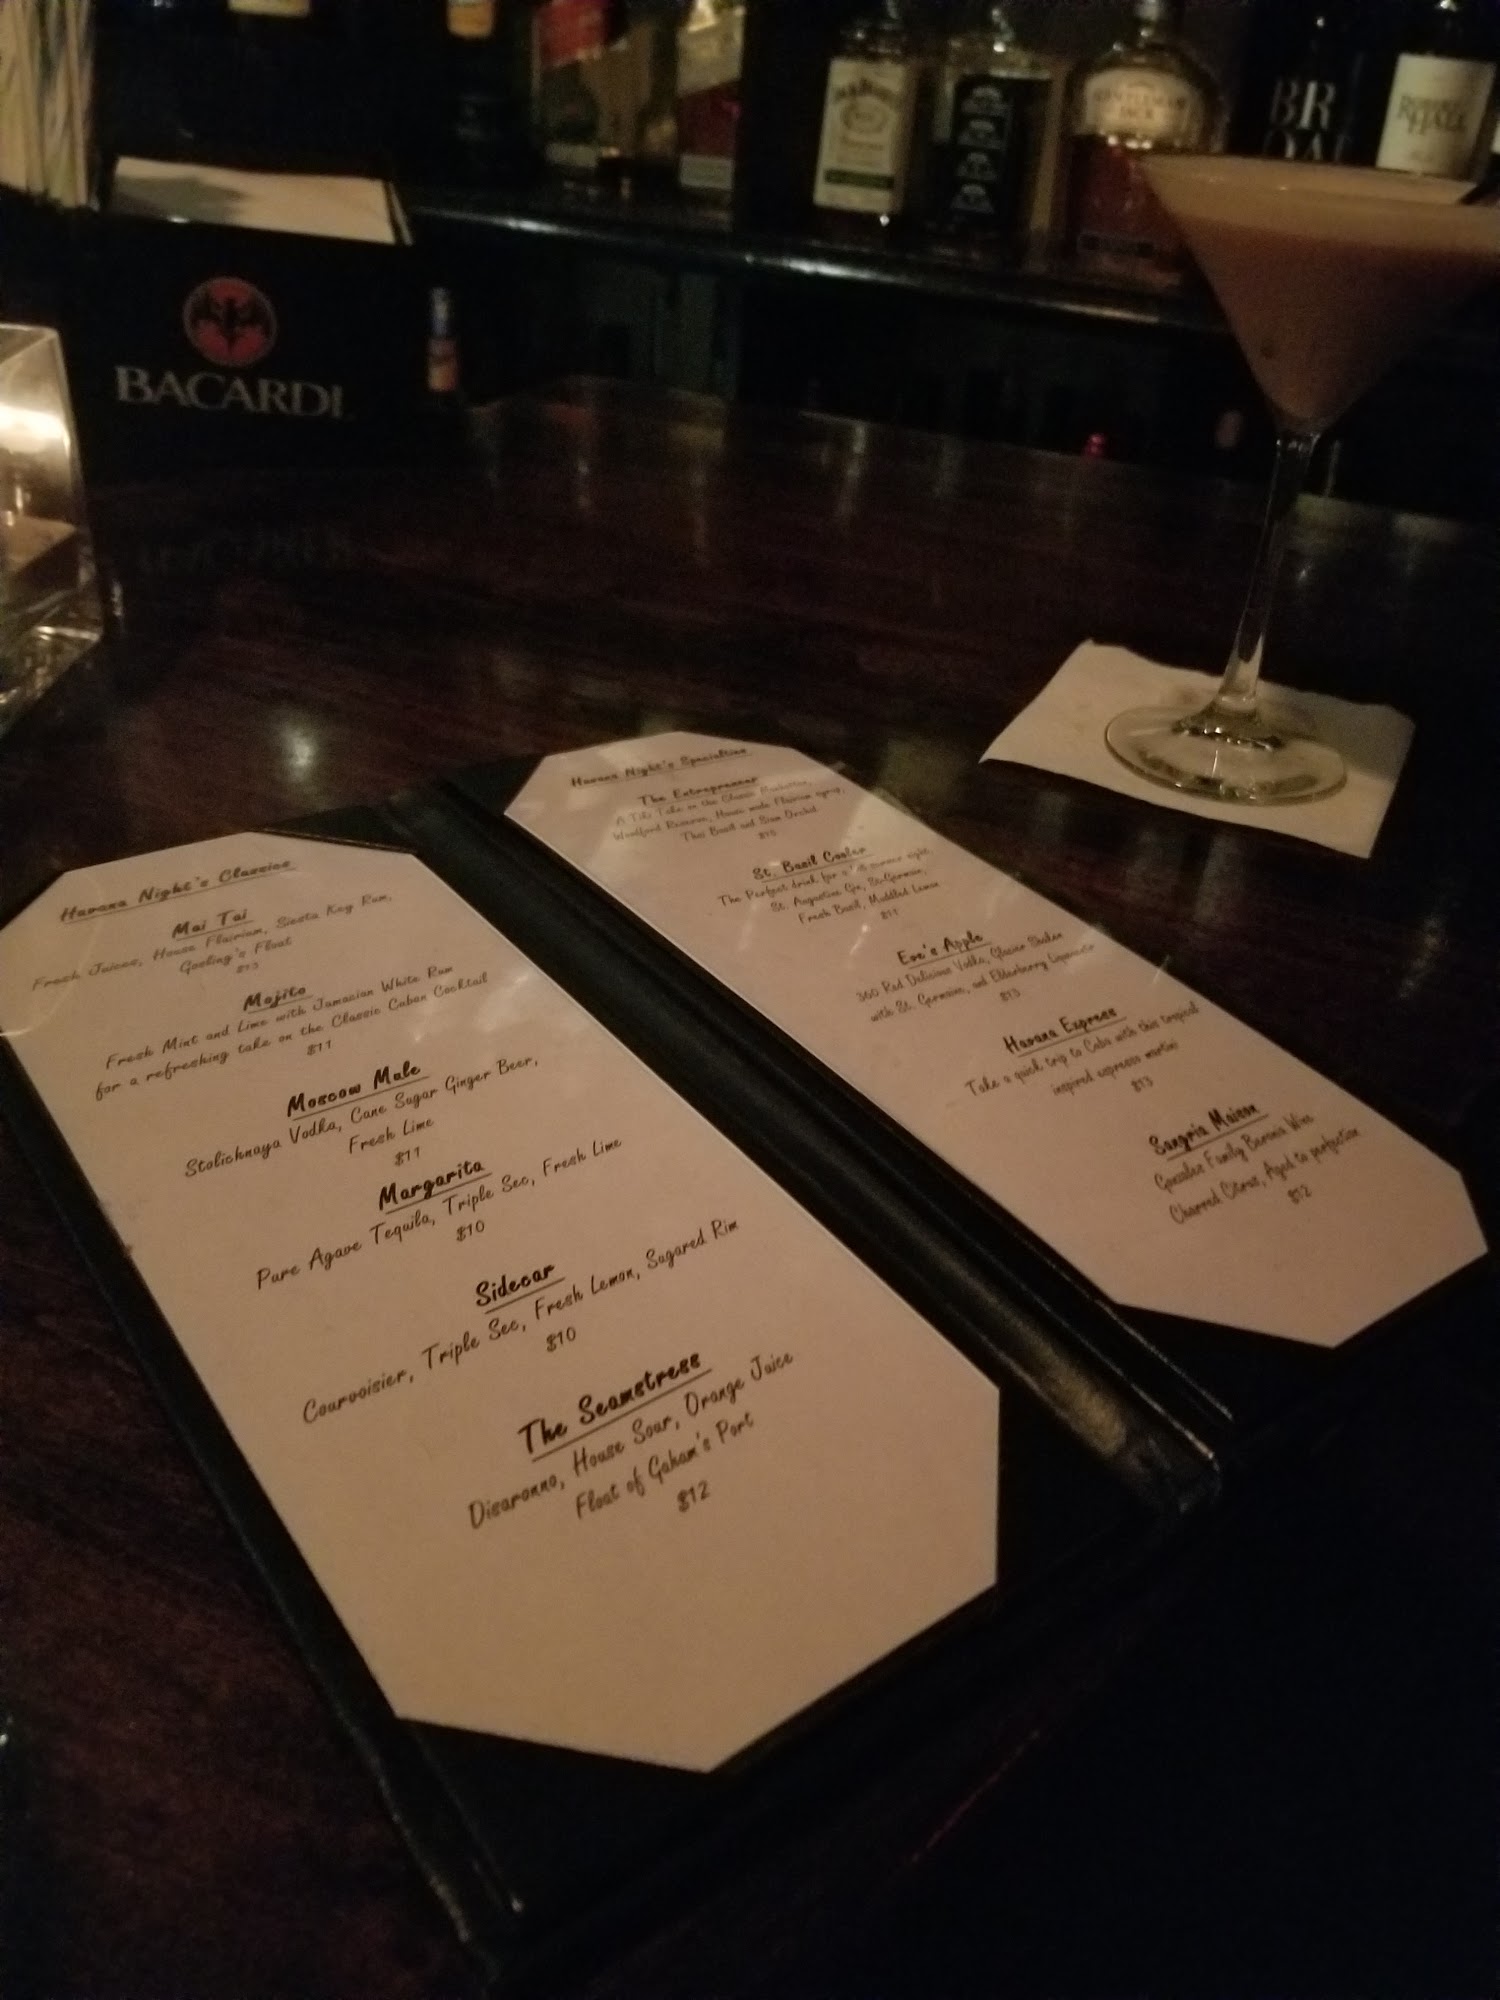 BACARDI
GENTLEMAN
JACK
BR
Havana Night's Classics
Mai Tai
Fresh Juices, House Flairium, Siesta Key Rum,
Gosling's Float
$13
Mojito
Fresh Mint and Lime with Jamacian White Rum
for a refreshing take on the Classic Cuban Cocktail
$11
Moscow Mule
Stolichnaya Vodka, Cane Sugar Ginger Beer,
Fresh Lime
$11
Margarita
Pure Agave Tequila, Triple Sec, Fresh Lime
$10
Sidecar
Courvoisier, Triple Sec, Fresh Lemon, Sugared Rim
$10
The Seamstress
Disaronno, House Sour, Orange Juice
Float of Gaham's Port
$12
Havana Night's Specialties
The Entreprenner
A Tiki Take on the Classic
Woodford Reserve, House made Flairium syrup,
Thai Basil and Siam Orchid
$15
St. Basil Cooler
The Perfect drink for a summer night.
St. Augustine Gin, St.Germain,
Fresh Basil, Muddled Lemon
$11
Eve's Apple
360 Red Delicious Vodka, Glacier Shaken
with St. Germaine, and Elderberry Liqueur
$13
Havana Express
Take a quick trip to Cuba with this tropical
inspired espresso martini
$13
Sangria Maison
Gonzalez Family Baronia Wine
Charred Citrus, Aged to perfection
$12